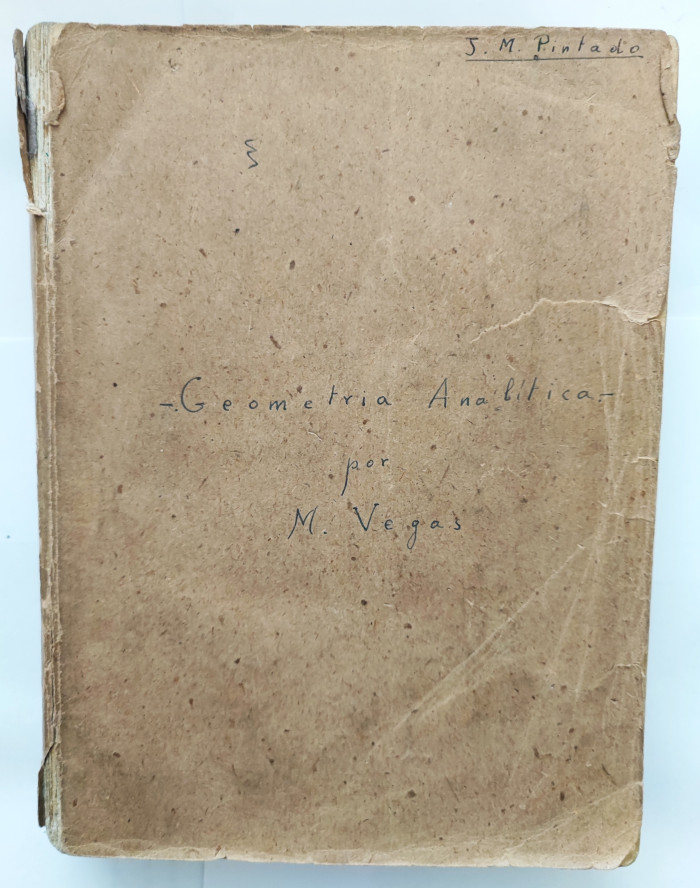 J. M. Pintado
-Geometria Analítica-
por
M. Vegas